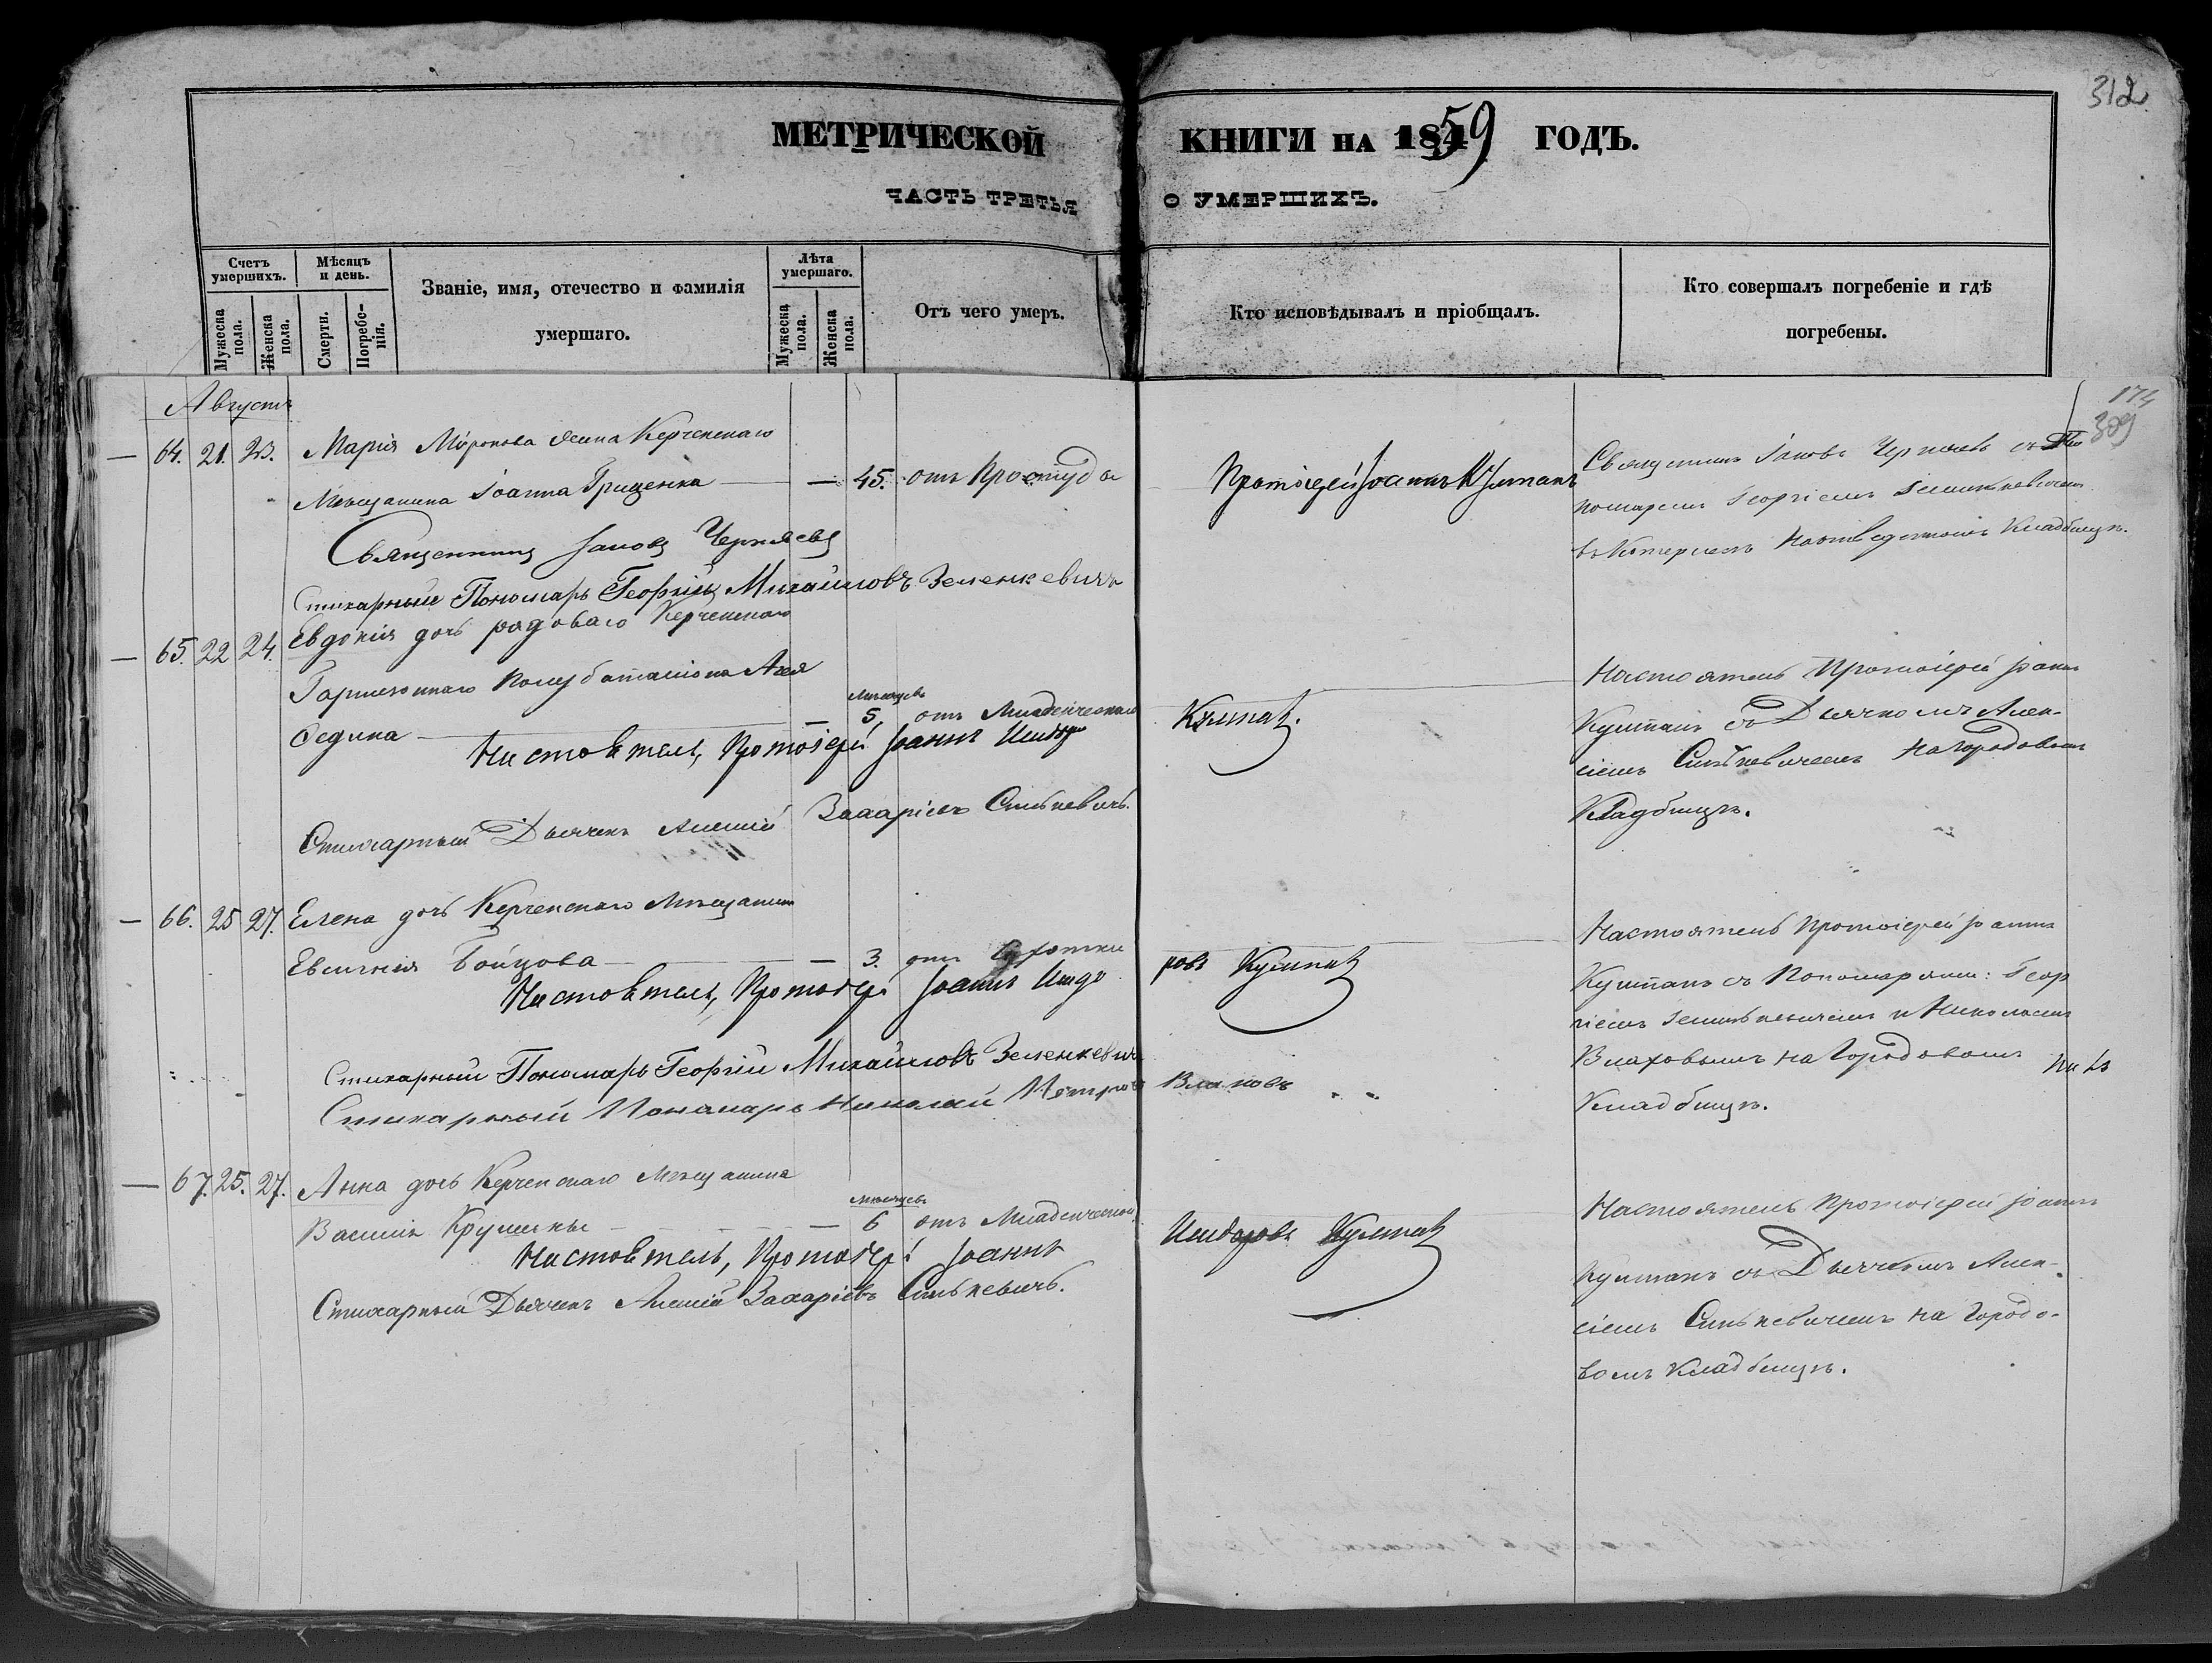 312
МЕТРИЧЕСКОЙ КНИГИ НА 1859 ГОДЪ.
ЧАСТЬ ТРЕТЬЯ О УМЕРШИХЪ.
Счетъ умершихъ.
Мужеска пола.
Женска пола.
Мѣсяцъ и день.
Смерти.
Погребенія.
Званіе, имя, отечество и фамилія
умершаго.
Лѣта умершаго.
Мужеска пола.
Женска пола.
Отъ чего умеръ.
Кто исповѣдывалъ и пріобщалъ.
Кто совершалъ погребеніе и гдѣ
погребены.
174
309
Августъ
— 64. 21. 23. Марія Миронова жена Керченскаго
Мѣщанина Іоанна Гриценка — 45. отъ Простуды
Протоіерей Іоаннъ Кумпанъ
Священникъ Іаковъ Черняевъ съ По
номаремъ Георгіемъ Зеленкевичемъ
въ Кладбищѣ.
Священникъ Іаковъ Черняевъ
Стихарный Пономарь Георгій Михайловъ Зеленкевичъ
— 65. 22 24. Евдокія дочь рядоваго Керченскаго
Гарнизоннаго Полубаталіона
Федина — мѣсяцевъ 5, отъ Младенческой
Настоятель Протоіерей Іоаннъ
Кумпанъ съ Дьячкомъ Алек-
сіемъ Синькевичемъ на Городовомъ
Кладбищѣ.
Настоятель, Протоіерей Іоаннъ Исидоръ Кумпанъ.
Стихарный Дьячекъ Алексій Захаріевъ Синькевичъ.
— 66. 25 27. Елена дочь Керченскаго Мѣщанина
Евгенія Бойцова — 3. отъ Сухотки
Настоятель Протоіерей Іоаннъ
Кумпанъ съ Пономарями: Геор
гіемъ Зеленкевичемъ и Николаемъ
Влаховымъ на Городовомъ
Кладбищѣ.
Настоятель, Протоіерей Іоаннъ Исидоровъ Кумпанъ
Стихарный Пономарь Георгій Михайловъ Зеленкевичъ
Стихарный Пономарь Николай Петровъ Влаховъ
— 67. 25. 27. Анна дочь Керченскаго Мѣщанина
Василія — мѣсяцевъ 6 отъ Младенческой
Настоятель Протоіерей Іоаннъ
Кумпанъ съ Дьячкомъ Алек-
сіемъ Синькевичемъ на Городо-
вомъ Кладбищѣ.
Настоятель, Протоіерей Іоаннъ Исидоровъ Кумпанъ
Стихарный Дьячекъ Алексій Захаріевъ Синькевичъ.